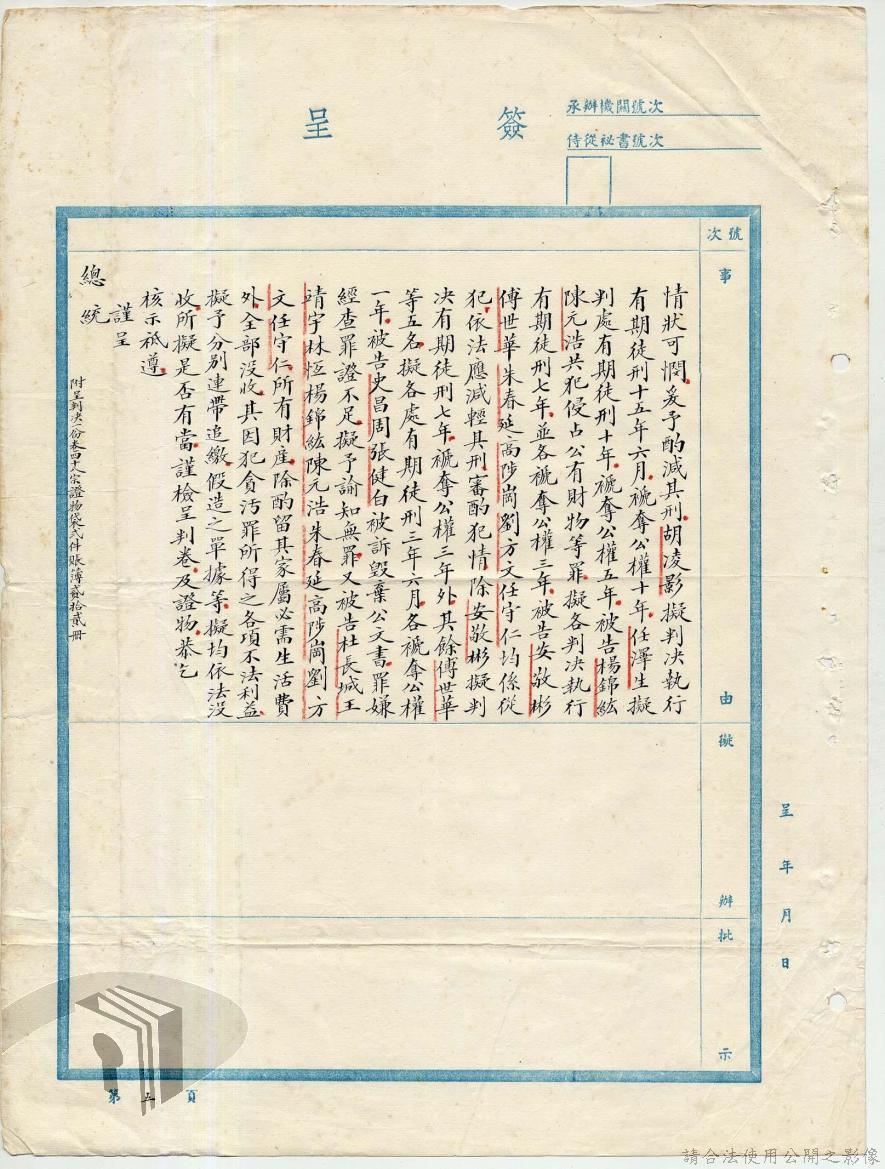 簽呈
承辦機關號次
侍從祕書號次
號次
事由
擬辦
批示
情狀可憫爰予酌減其刑胡凌影擬判决執行
有期徒刑十五年六月褫奪公權十年任澤生擬
判處有期徒刑十年褫奪公權五年被告楊錦紘
陳元浩共犯侵占公有財物等罪擬各判决執行
有期徒刑七年並各褫奪公權三年被告安敬彬
傅世華朱春延高陟崗劉方文任守仁均係從
犯依法應減輕其刑審酌犯情除安敬彬擬判
决有期徒刑七年褫奪公權三年外其餘傅世華
等五名擬各處有期徒刑三年六月各褫奪公權
一年被告史昌周張健白被訴毀棄公文書罪嫌
經查罪證不足擬予諭知無罪又被告杜長城王
靖宇林恆楊錦紘陳元浩朱春延高陟崗劉方
文任守仁所有財產除酌留其家屬必需生活費
外全部沒收其因犯貪污罪所得之各項不法利益
擬予分別連帶追繳假造之單據等擬均依法沒
收所擬是否有當謹檢呈判卷及證物恭乞
核示祗遵
謹呈
總統
附呈判决二份卷四十八宗證物袋弍件賬簿貳拾貳冊
呈 年 月 日
第五頁
請合法使用公開之影像